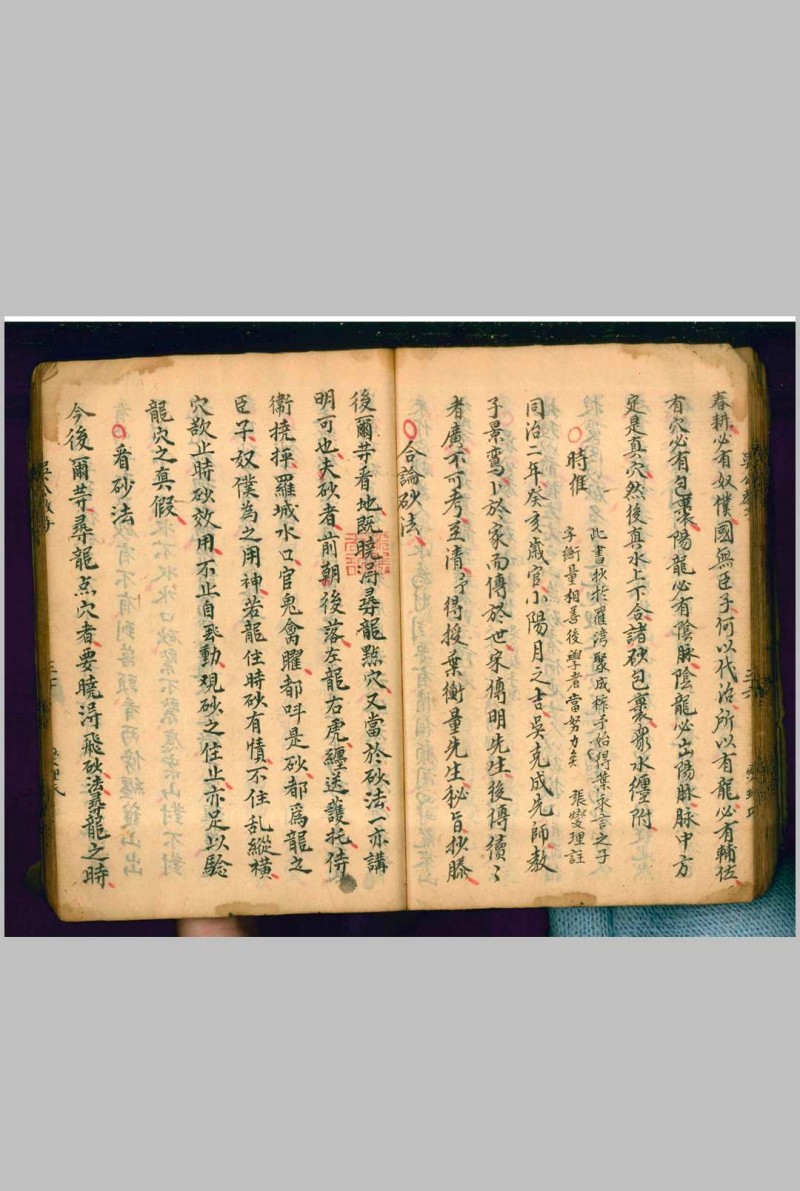 春耕必有奴僕國無臣子何以代治所以有龍必有輔佐
有穴必有包裹陽龍必有陰脉陰龍必出陽脉脉中方
定是真穴然後真水上下合諸砂包裹衆水纏附
時惟
此書抄於羅灣聚成樣予始得葉永言之子
字衡量相善後學者當努力矣 張燮理註
同治二年癸亥歲官小陽月之吉吳克成先師教
子景鸞卜於家而傳於世宋傳明先生後傳續〻
者廣不可考至清予得授葉衡量先生秘旨抄謄
合論砂法
後爾等看地既曉得尋龍點穴又當於砂法一亦講
明可也夫砂者前朝後落左龍右虎纏送護托侍
衛撓揮羅城水口官鬼禽曜都呌是砂都爲龍之
臣子奴僕為之用神若龍住時砂有情不住乱縱橫
穴欲止時砂效用不止自飛動观砂之住止亦足以騐
龍穴之真假
看砂法
今後爾等尋龍点穴者要曉得飛砂法尋龍之時